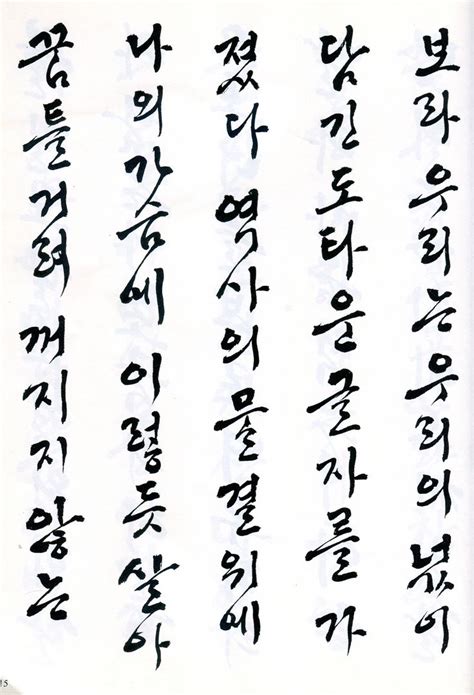 보라 우리는 우리의 넋이
담긴 도타운 글자를 가
졌다 역사의 물결 위에
나의 가슴에 이렇듯 살아
꿈틀거려 꺼지지 않는
15